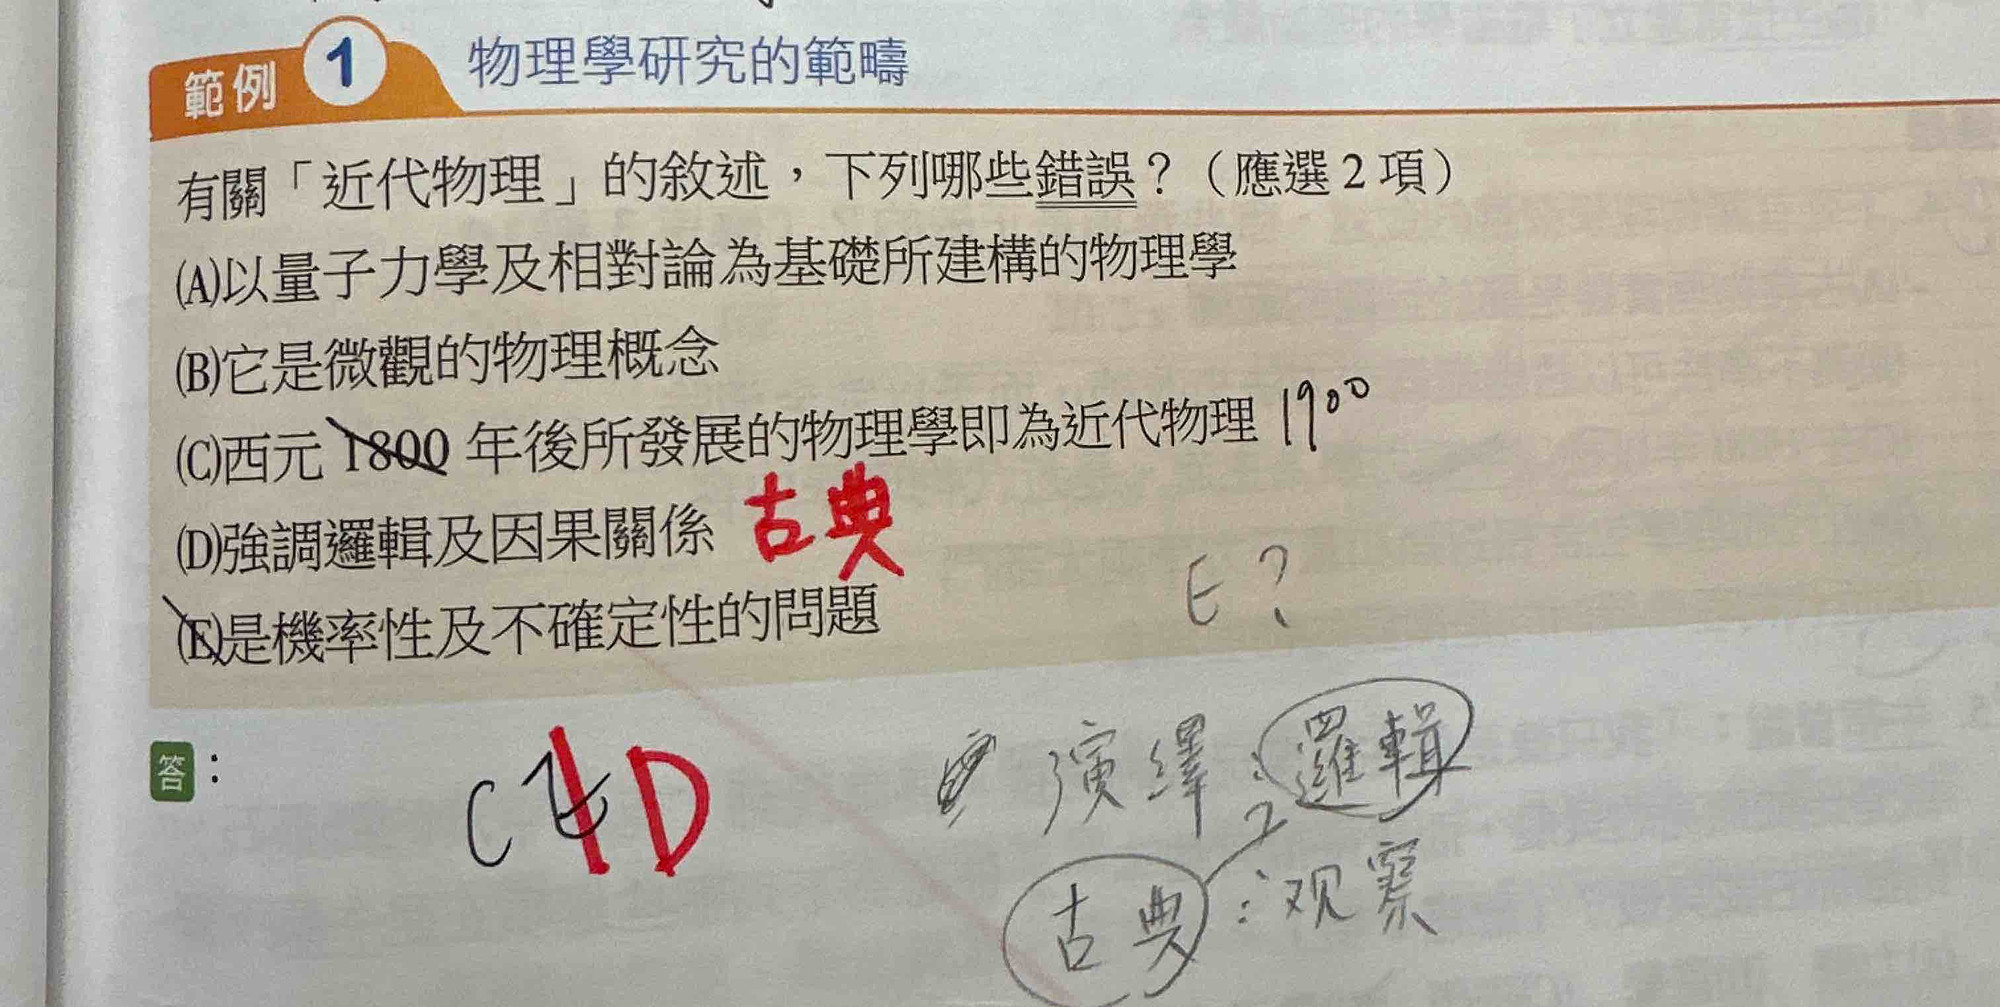 範例 1 物理學研究的範疇
有關「近代物理」的敘述，下列哪些錯誤？（應選2項）
(A)以量子力學及相對論為基礎所建構的物理學
(B)它是微觀的物理概念
(C)西元 1800 年後所發展的物理學即為近代物理 1900
(D)強調邏輯及因果關係 古典
(E)是機率性及不確定性的問題
E？
答：
C E D
演繹：邏輯
古典：观察